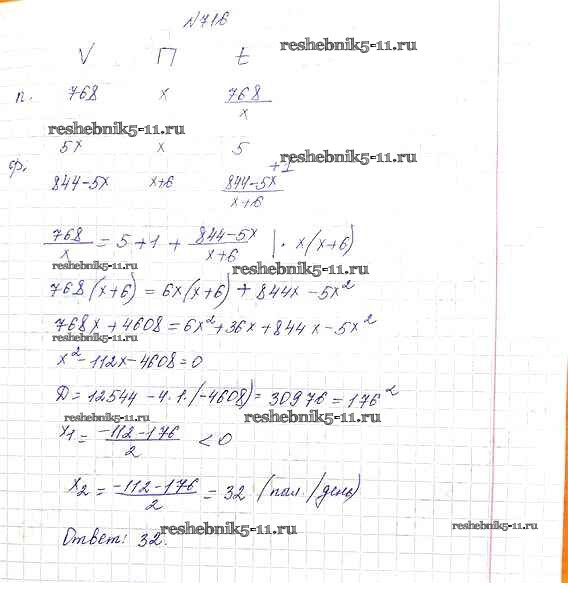 №716
reshebnik5-11.ru
V П t
п. 768 x 768/x
reshebnik5-11.ru
5x x 5
reshebnik5-11.ru
ф. +1
844-5x x+6 844-5x/x+6
768/x = 5+1+ 844-5x/x+6 | · x(x+6)
reshebnik5-11.ru
reshebnik5-11.ru
768(x+6) = 6x(x+6) + 844x - 5x²
768x + 4608 = 6x² + 36x + 844x - 5x²
reshebnik5-11.ru
x² - 112x - 4608 = 0
D = 12544 - 4·1·(-4608) = 30976 = 176²
reshebnik5-11.ru
reshebnik5-11.ru
x₁ = -112-176/2 < 0
x₂ = -112-176/2 = 32 (пал./день)
reshebnik5-11.ru
reshebnik5-11.ru
Ответ: 32.